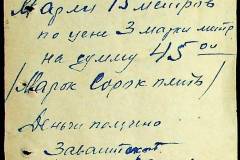 Марли 15 метров
по цене 3 марки метр
на сумму 45 00
/Марок Сорок пять/
Деньги получено